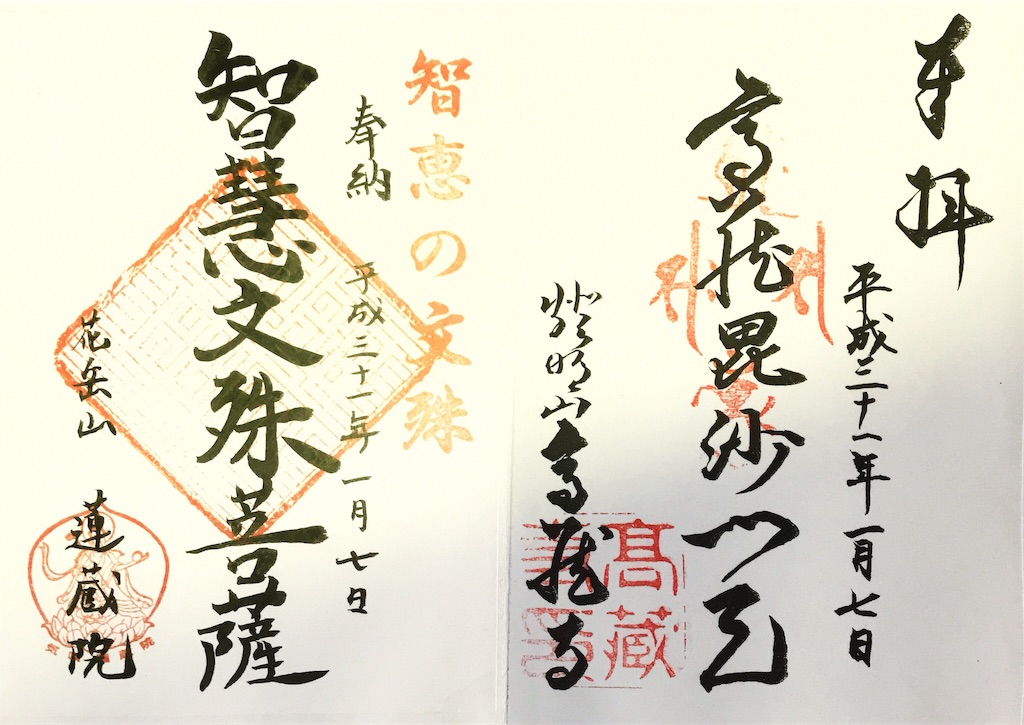 奉拝
平成三十一年一月七日
高蔵毘沙門天
燈明山高蔵寺
高蔵
智恵の文殊
奉納
平成三十一年一月七日
智慧文殊菩薩
花岳山
蓮蔵院